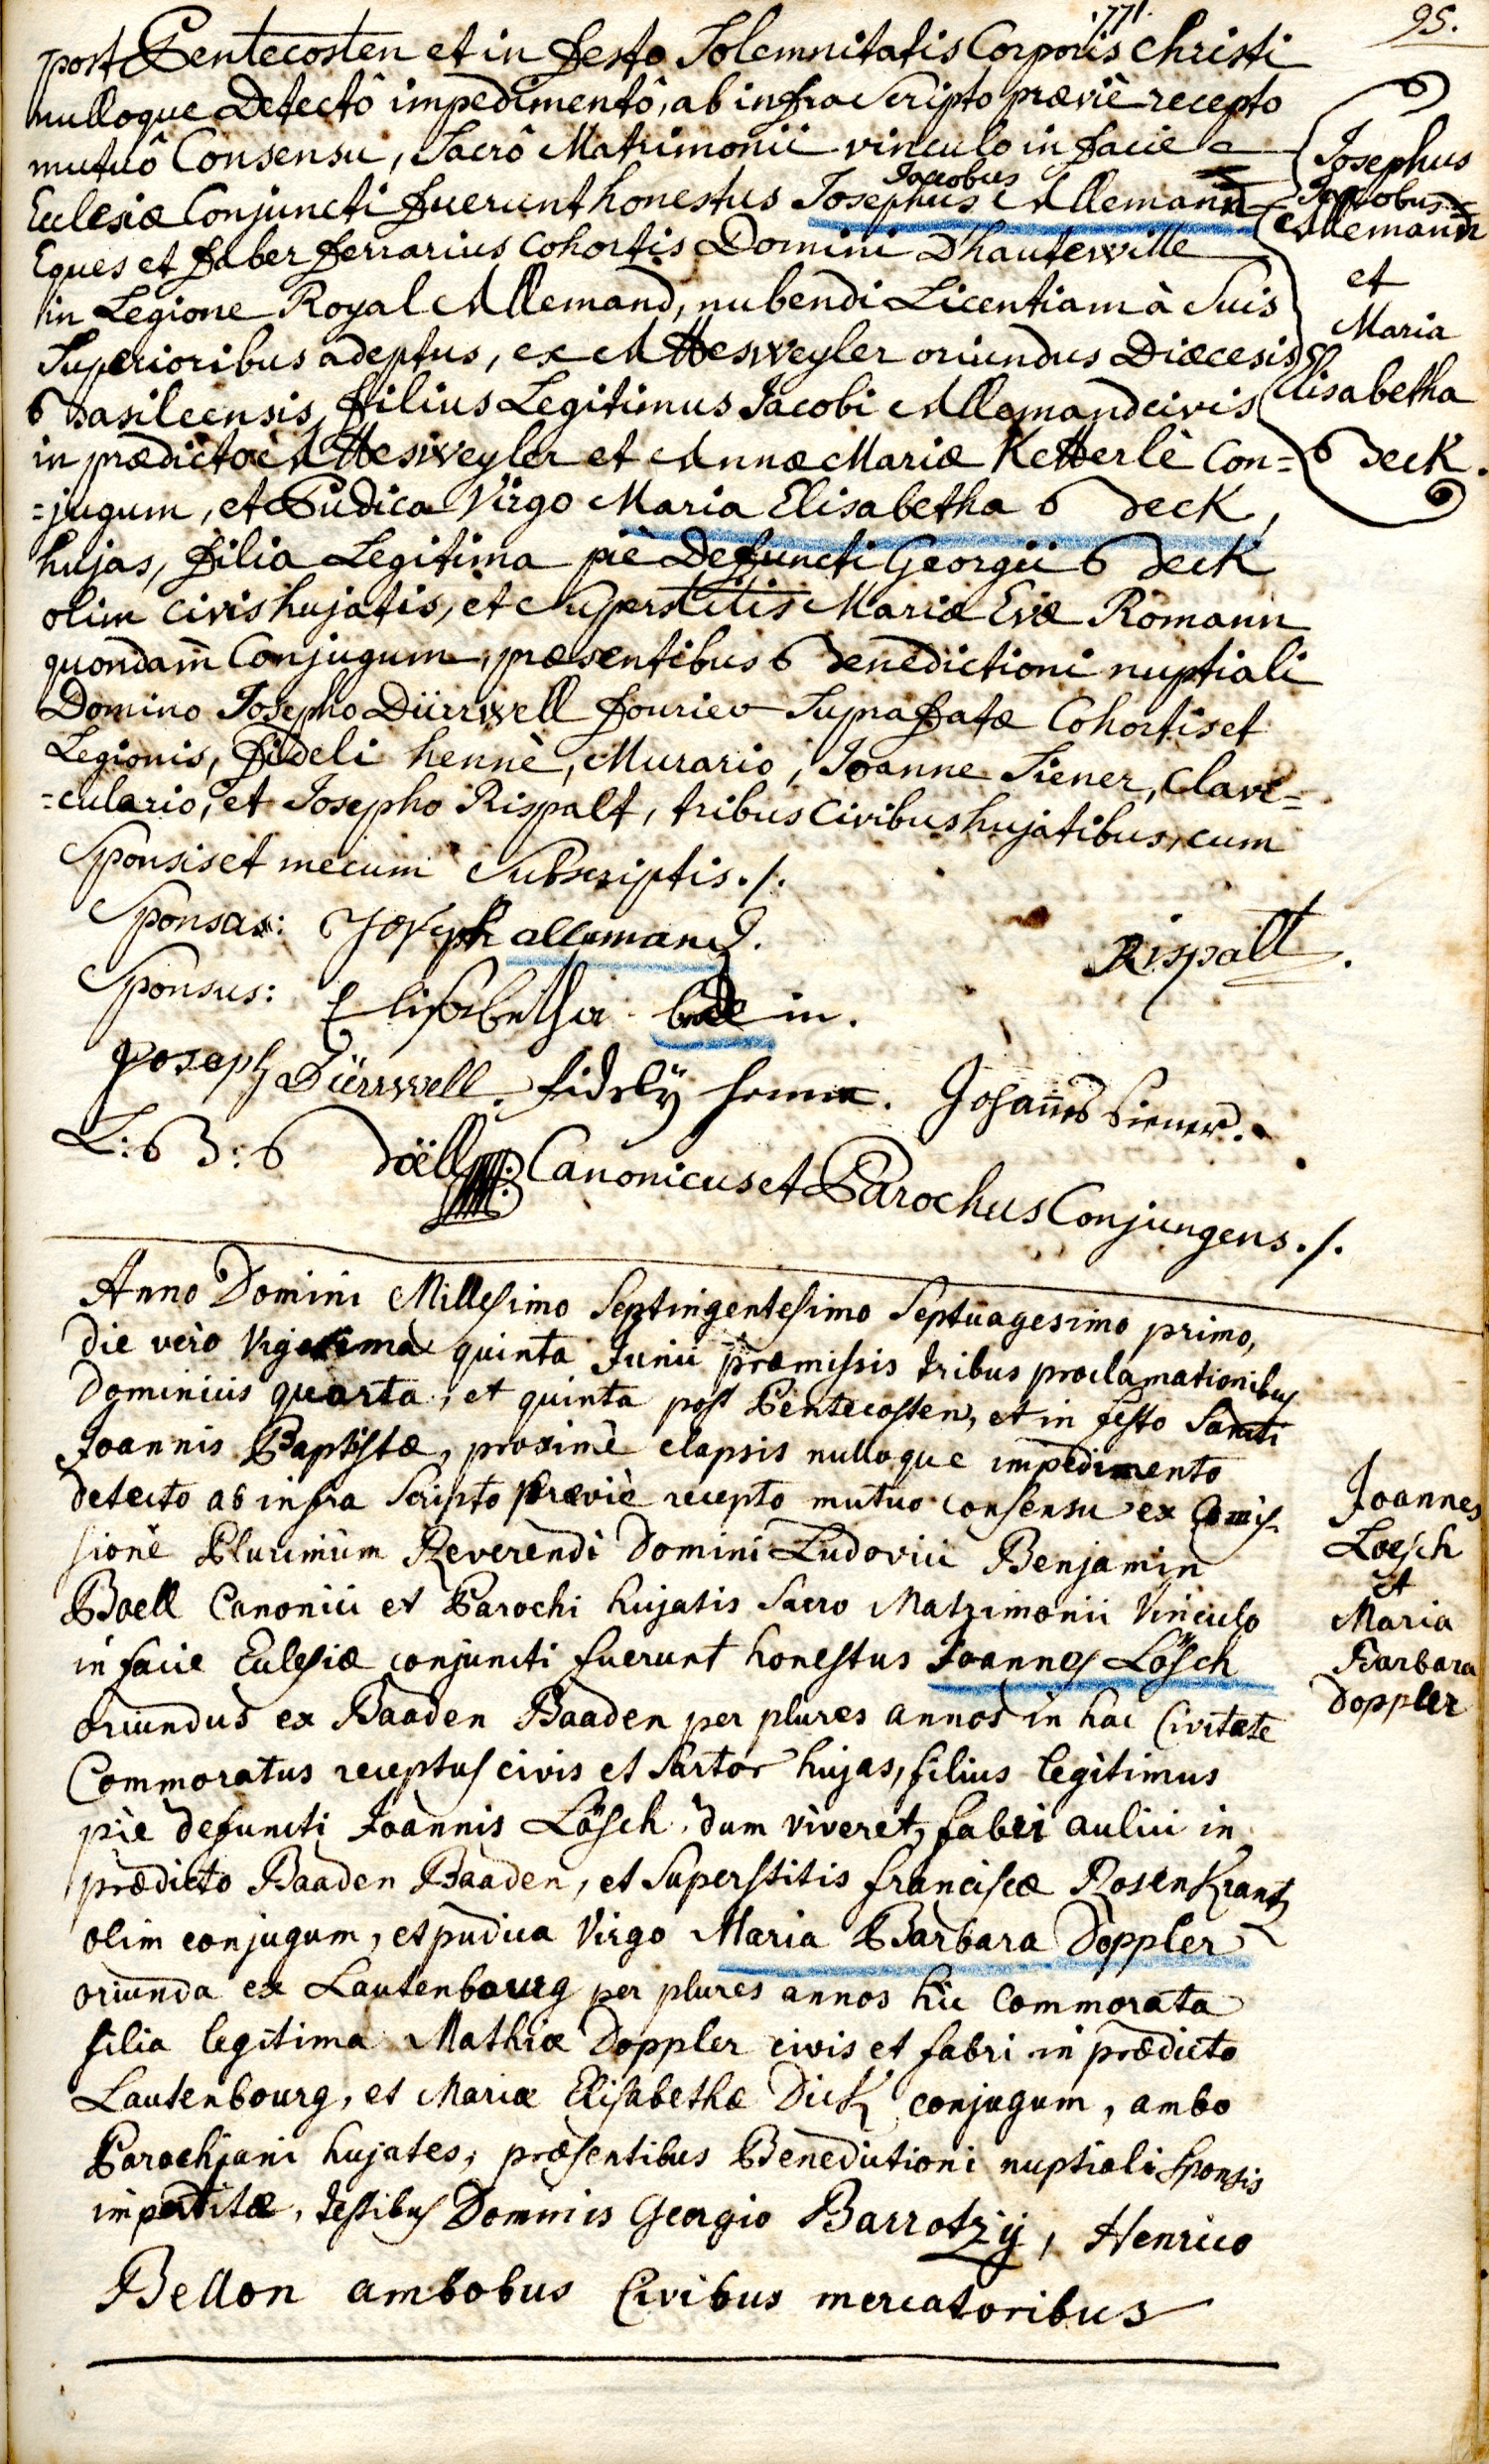 1771.
95.
post Pentecosten et in festo Solemnitatis Corporis Christi
nulloque Detectô impedimentô, ab infra Scripto præviè recepto
mutuô Consensu, Sacrô Matrimonii vinculo in facie
Eclesiæ Conjuncti fuerunt honestus Josephus Jacobus Allemand
Eques et faber ferrarius Cohortis Domini Dhautewille
in Legione Royal Allemand, nubendi Licentiam à Suis
Superioribus adeptus, ex Attesweyler oriundus Diœcesis
Basileensis, filius Legitimus Jacobi Allemand civis
in prædicto Attesweyler et Annæ Mariæ Ketterlè Con=
=jugum, et Pudica Virgo Maria Elisabetha Beck,
hujas, filia Legitima piè Defuncti Georgii Beck
olim civis hujatis, et Superstitis Mariæ Evæ Romann
quondam Conjugum, præsentibus Benedictioni nuptiali
Domino Josepho Dürrwell fourier Suprafatæ Cohortis et
Legionis, fideli hennè, Murario, Joanne Siener, Clavi=
=culario, et Josepho Rispalt, tribus Civibus hujatibus, cum
Sponsis et mecum Subscriptis./.
Josephus
Jacobus
Allemand
et
Maria
Elisabetha
Beck.
Sponsas: Joseph allemand.
Rispalt.
Sponsus: Elisabetha in.
Joseph Dürrwell. fidely henne. Johannes Siener.
L: B: Boëll Canonicus et Parochus Conjungens./.
Anno Domini Millesimo Septingentesimo Septuagesimo primo,
die verò Vigesimà quinta Junii præmissis tribus proclamationibus
Dominicis quarta, et quinta post Pentecosten, et in festo Sancti
Joannis Baptistæ, proximè elapsis nulloque impedimento
detecto ab infra Scripto præviè recepto mutuo consensu ex Comis
sionè Plurimùm Reverendi Domini Ludovici Benjamin
Boell Canonici et Parochi hujatis Sacro Matrimonii Vinculo
in facie Eclesiæ conjuncti fuerunt honestus Joannes Lösch
oriundus ex Baaden Baaden per plures annos in hac Civitate
Commoratus receptus civis et Sartor hujas, filius legitimus
piè defuncti Joannis Lösch dum viveret, fabri aulici in
prædicto Baaden Baaden, et Superstitis franciscæ Rosenkrantz
olim conjugum, et pudica Virgo Maria Barbara Doppler
oriunda ex Lautenbourg per plures annos hic Commorata
filia legitima Mathiæ Doppler civis et fabri in prædicto
Lautenbourg, et Mariæ Elisabethæ Dick conjugum, ambo
Parochiani hujates, præsentibus Benedictioni nuptiali Sponsis
impertitæ, testibus Dominis Georgio Barrotzij, Henrico
Bellon ambobus Civibus mercatoribus
Joannes
Loesch
et
Maria
Barbara
Doppler